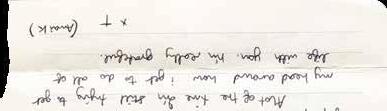 Most of the time im still trying to get
my head around how i get to do all of
life with you. im really grateful.
x † (mark)